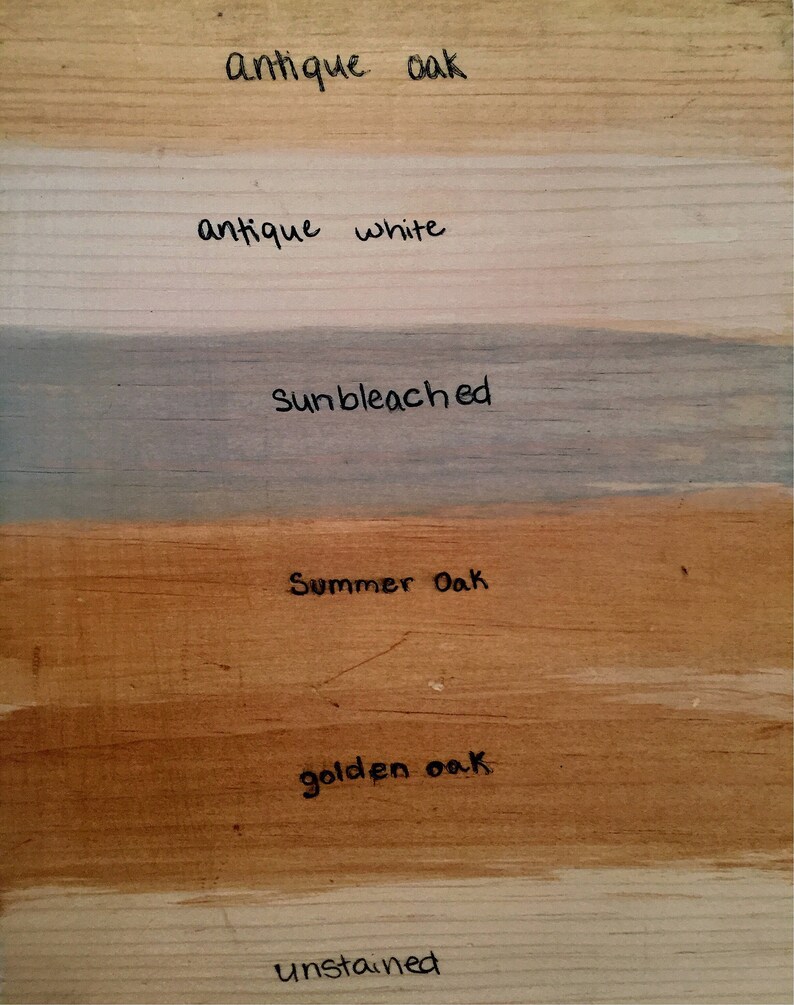 antique oak
antique white
sunbleached
Summer Oak
golden oak
unstained